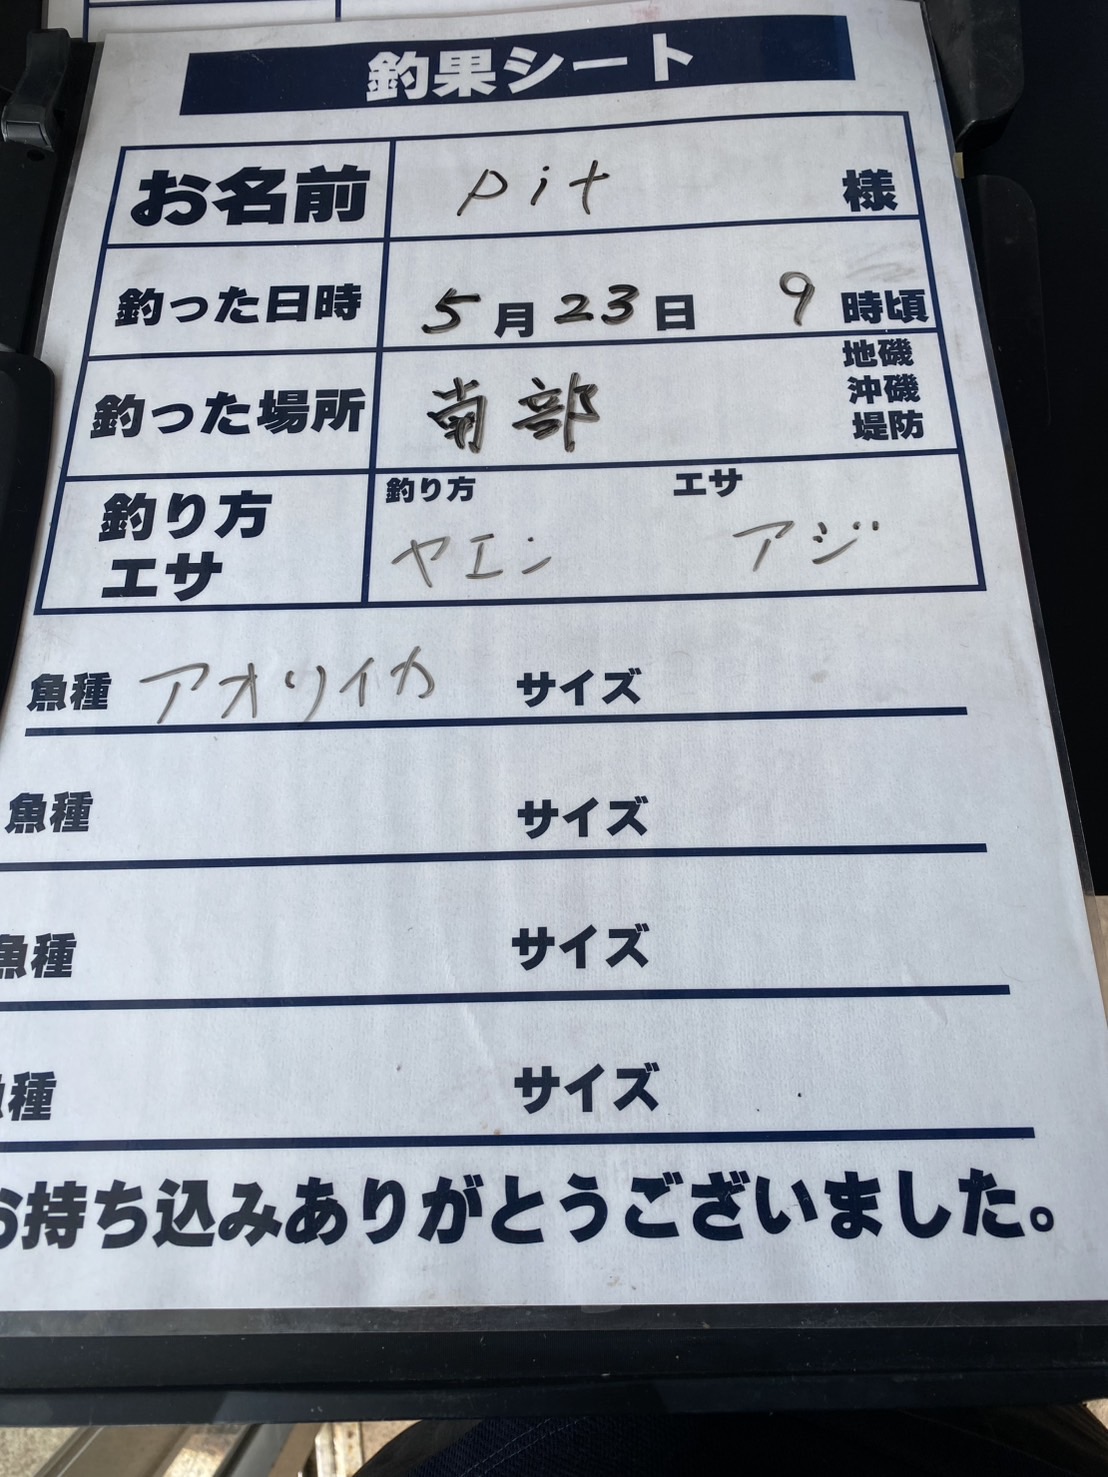 釣果シート
お名前 pit 様
釣った日時 5月23日 9時頃
釣った場所 南部 地磯
沖磯
堤防
釣り方 エサ
釣り方 ヤエン エサ アジ
魚種 アオリイカ サイズ
魚種 サイズ
魚種 サイズ
魚種 サイズ
お持ち込みありがとうございました。